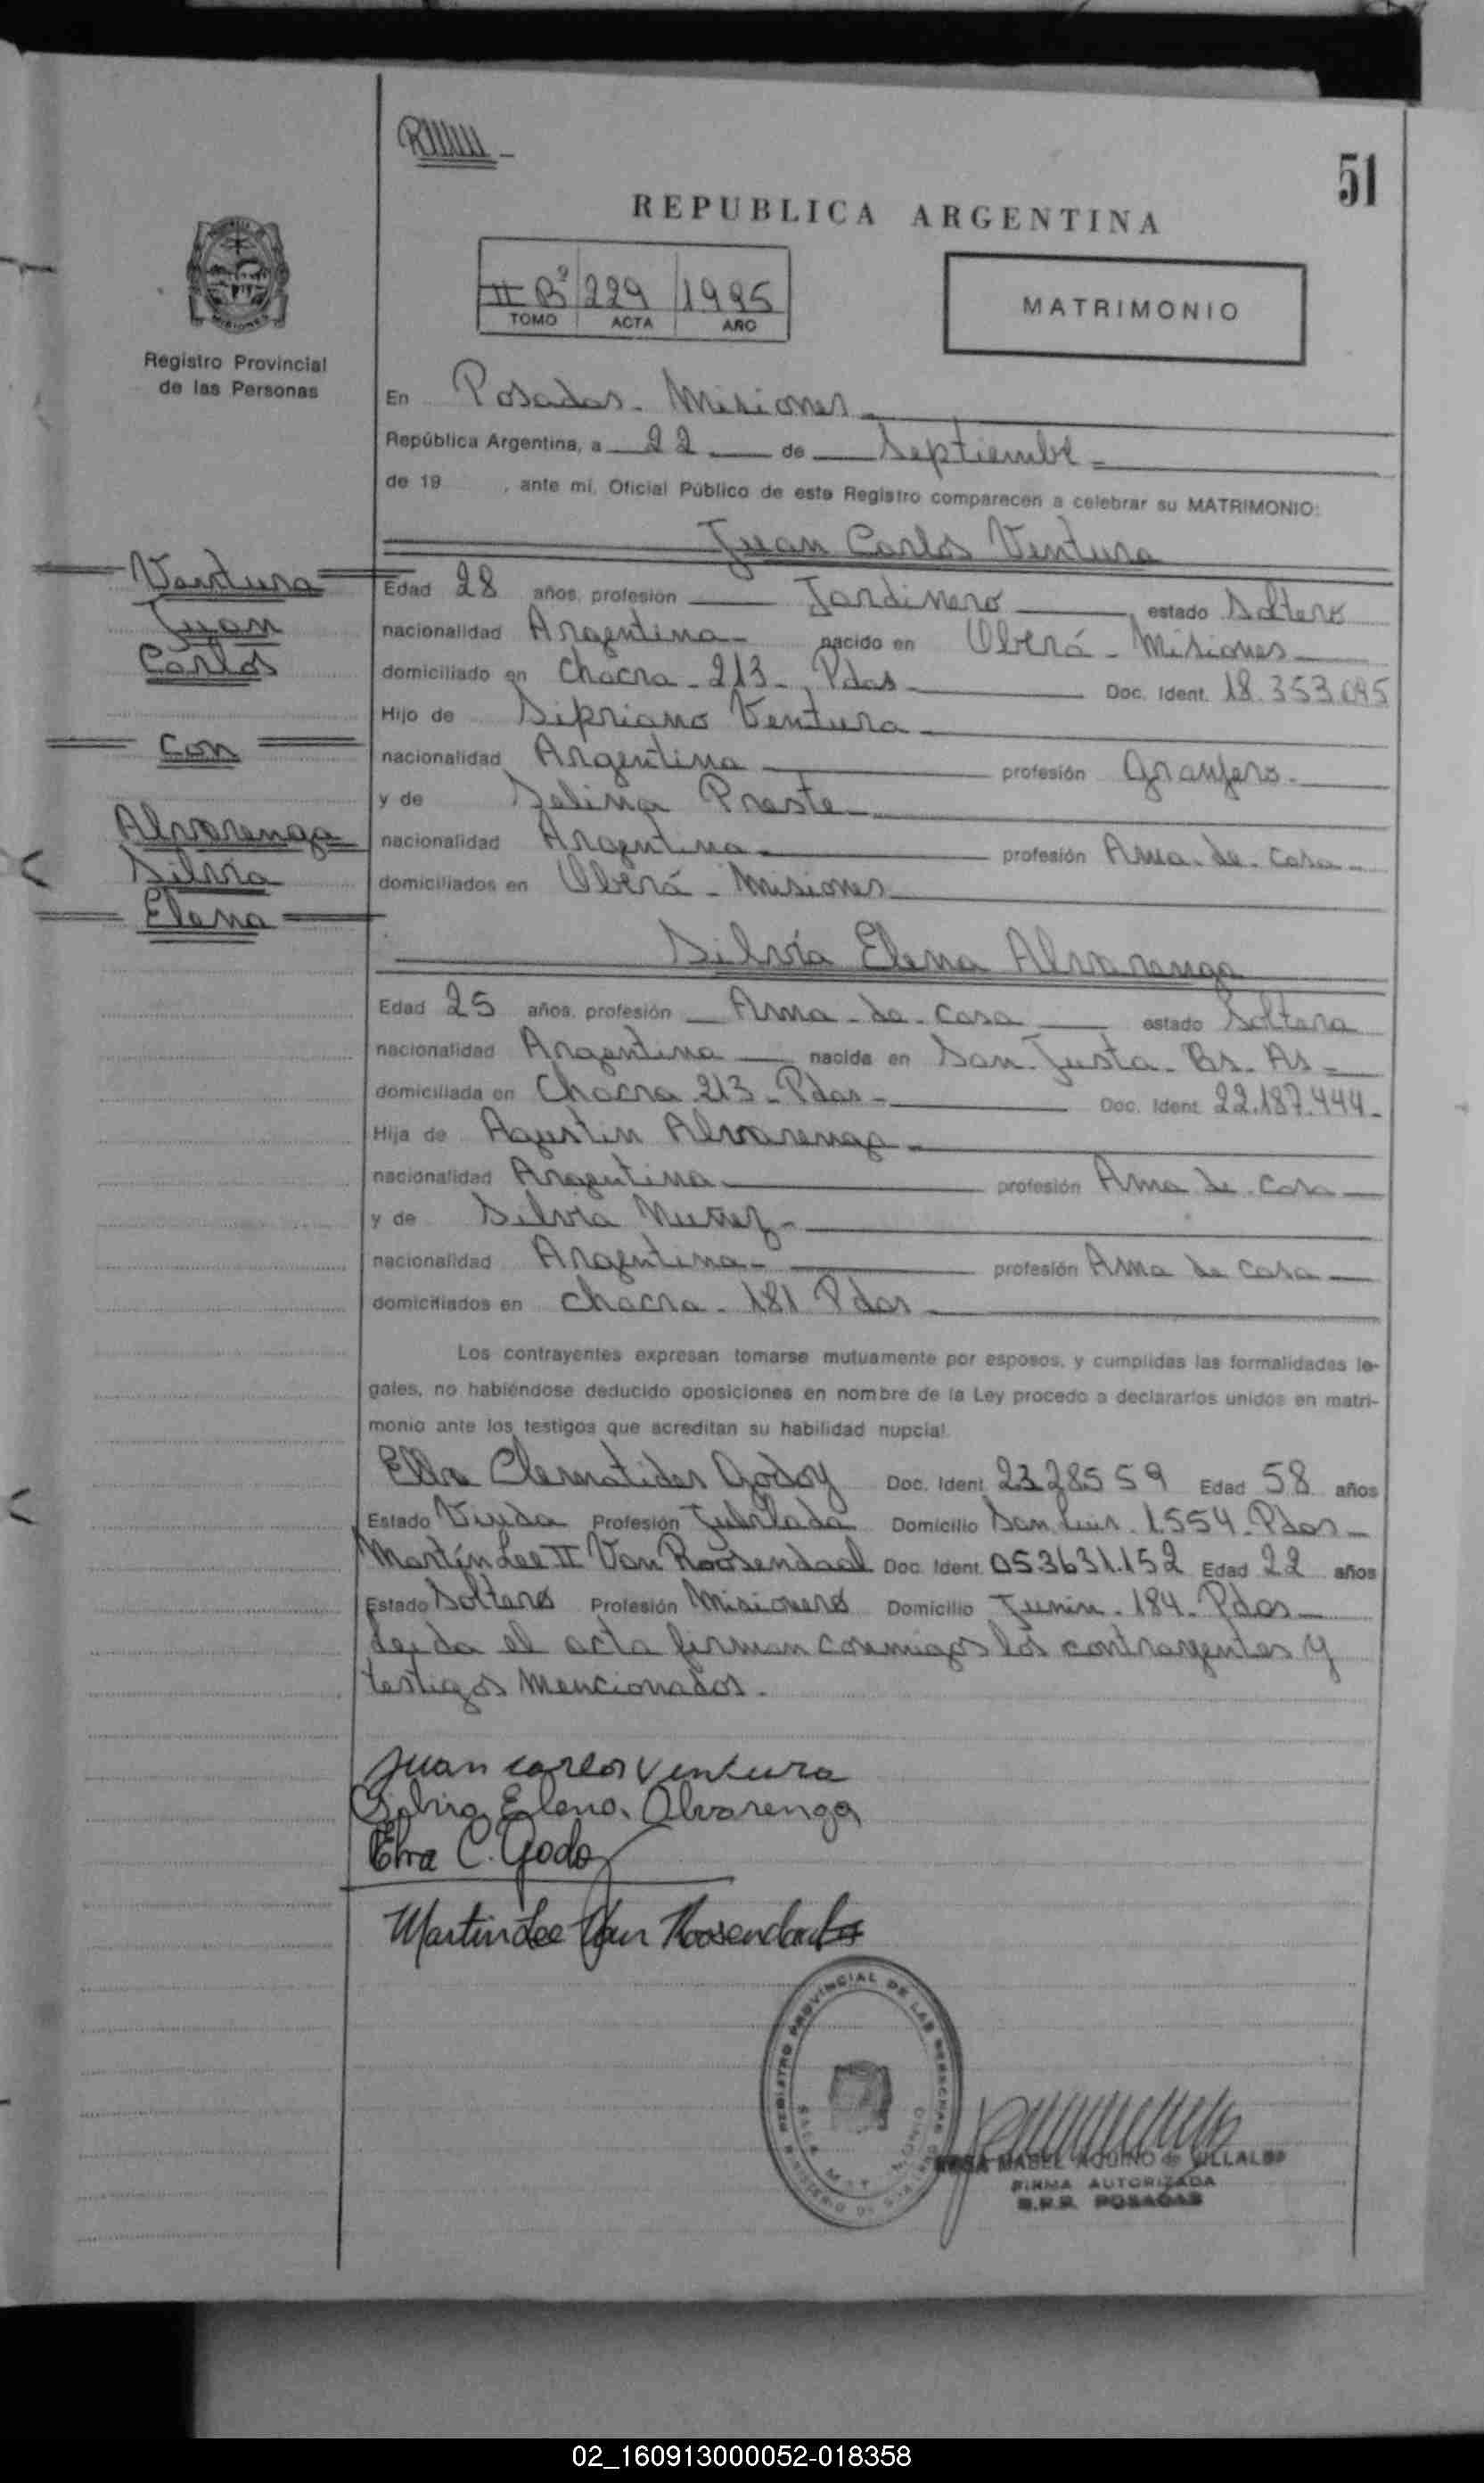 51
REPUBLICA ARGENTINA
II Bº 229 1995
TOMO ACTA AÑO
MATRIMONIO
Registro Provincial
de las Personas
En Posadas - Misiones
República Argentina, a 22 de Septiembre
de 19 , ante mí, Oficial Público de este Registro comparecen a celebrar su MATRIMONIO:
Juan Carlos Ventura
Ventura
Juan
Carlos
Con
Alvarenga
Silvia
Elena
Edad 28 años, profesión Jardinero estado Soltero
nacionalidad Argentina - nacido en Oberá - Misiones
domiciliado en Chacra - 213 - Pdas - Doc. Ident. 18.353.095
Hijo de Sipriano Ventura
nacionalidad Argentina profesión Granjero -
y de Selina Preste
nacionalidad Argentina profesión Ama - de - casa
domiciliados en Oberá - Misiones
Silvia Elena Alvarenga
Edad 25 años, profesión Ama - de - casa estado Soltera
nacionalidad Argentina nacida en San - Justa - Bs. As -
domiciliada en Chacra 213 - Pdas - Doc. Ident. 22.187.444 -
Hija de Agustin Alvarenga
nacionalidad Argentina profesión Ama de - casa
y de Silvia Nuñez -
nacionalidad Argentina - profesión Ama de casa
domiciliados en chacra - 181 Pdas
Los contrayentes expresan tomarse mutuamente por esposos, y cumplidas las formalidades le-
gales, no habiéndose deducido oposiciones en nombre de la Ley procedo a declararlos unidos en matri-
monio ante los testigos que acreditan su habilidad nupcial.
Elba Clematides Godoy Doc. Ident. 2328559 Edad 58 años
Estado Viuda Profesión Jubilada Domicilio San Luis - 1554 - Pdas
Martín Lee II Van Roosendaal Doc. Ident. 053631.152 Edad 22 años
Estado Soltero Profesión Misionero Domicilio Junin - 184 - Pdas
Leida el acta firman conmigos los contrayentes y
testigos mencionados.
Juan carlos ventura
Silvia Elena Alvarenga
Elva C. Godoy
Martin Lee Van Roosendaal
REGISTRO PROVINCIAL DE LAS PERSONAS
MABEL AQUINO de VILLALBA
FIRMA AUTORIZADA
R.P.P. POSADAS
02_160913000052-018358